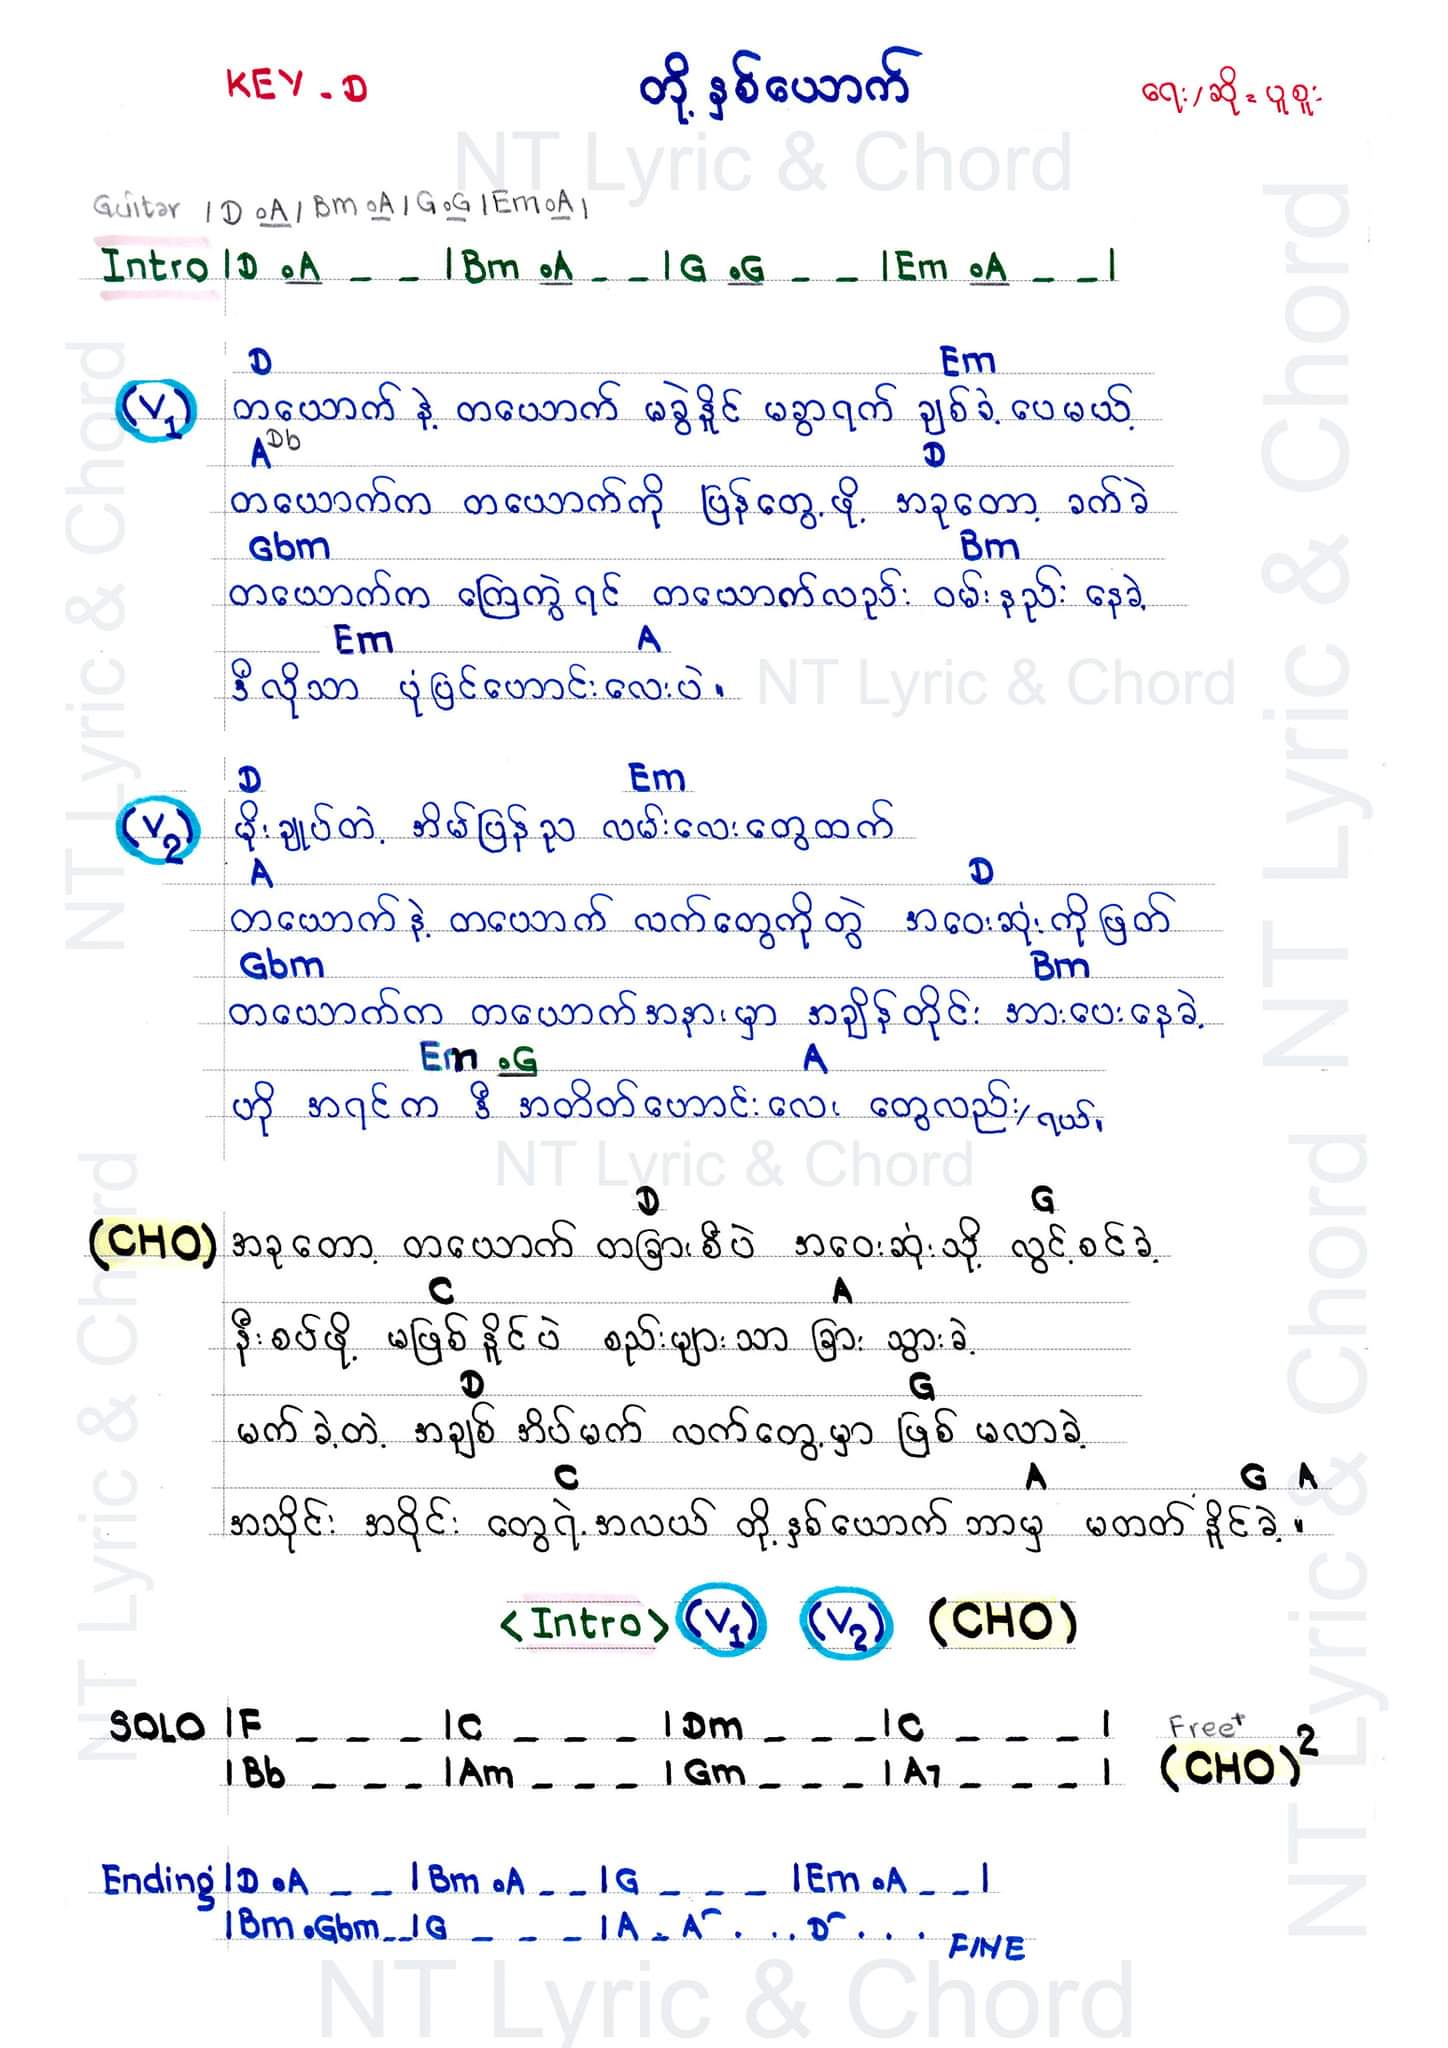 KEY - D
တို့ နှစ်ယောက်
ရေး/ဆို = ပူစူး
NT Lyric & Chord
Guitar | D .A | Bm .A | G .G | Em .A |
Intro | D .A _ _ | Bm .A _ _ | G .G _ _ | Em .A _ _ |
D Em
(V1) တယောက် နဲ့ တယောက် မခွဲနိူင် မခွာရက် ချစ်ခဲ့ ပေမယ့်
A Db D
တယောက်က တယောက်ကို ပြန်တွေ့ ဖို့ အခုတော့ ခက်ခဲ
Gbm Bm
တယောက်က ကြေကွဲ ရင် တယောက်လည်း ဝမ်းနည်း နေခဲ့
Em A
ဒီလိုသာ ပုံပြင်ဟောင်းလေးပဲ။
NT Lyric & Chord
D Em
(V2) မိုးချုပ်တဲ့ အိမ်ပြန်ည လမ်းလေးတွေထက်
A D
တယောက်နဲ့ တယောက် လက်တွေကိုတွဲ အဝေးဆုံးကိုဖြတ်
Gbm Bm
တယောက်က တယောက်အနားမှာ အချိန်တိုင်း အားပေးနေခဲ့
Em .G A
ဟို အရင်က ဒီ အတိတ်ဟောင်းလေး တွေလည်း/ ရယ်။
NT Lyric & Chord
D G
(CHO) အခုတော့ တယောက် တခြားစီပဲ အဝေးဆုံးသို့ လွင့်စင်ခဲ့
C A
နီးစပ်ဖို့ မဖြစ်နိူင်ပဲ စည်းများသာ ခြား သွားခဲ့
D G
မက်ခဲ့တဲ့ အချစ် အိပ်မက် လက်တွေ့မှာ ဖြစ် မလာခဲ့
C A G A
အသိုင်း အဝိုင်း တွေရဲ့အလယ် တို့နှစ်ယောက် ဘာမှ မတတ်နိူင်ခဲ့။
<Intro> (V1) (V2) (CHO)
SOLO | F _ _ _ | C _ _ _ | Dm _ _ _ | C _ _ _ | Free+
| Bb _ _ _ | Am _ _ _ | Gm _ _ _ | A7 _ _ _ | (CHO)2
Ending | D .A _ _ | Bm .A _ _ | G _ _ _ | Em .A _ _ |
| Bm .Gbm _ _ | G _ _ _ | A . A . . . D . . . FINE
NT Lyric & Chord
NT Lyric & Chord
NT Lyric & Chord
NT Lyric & Chord
NT Lyric & Chord